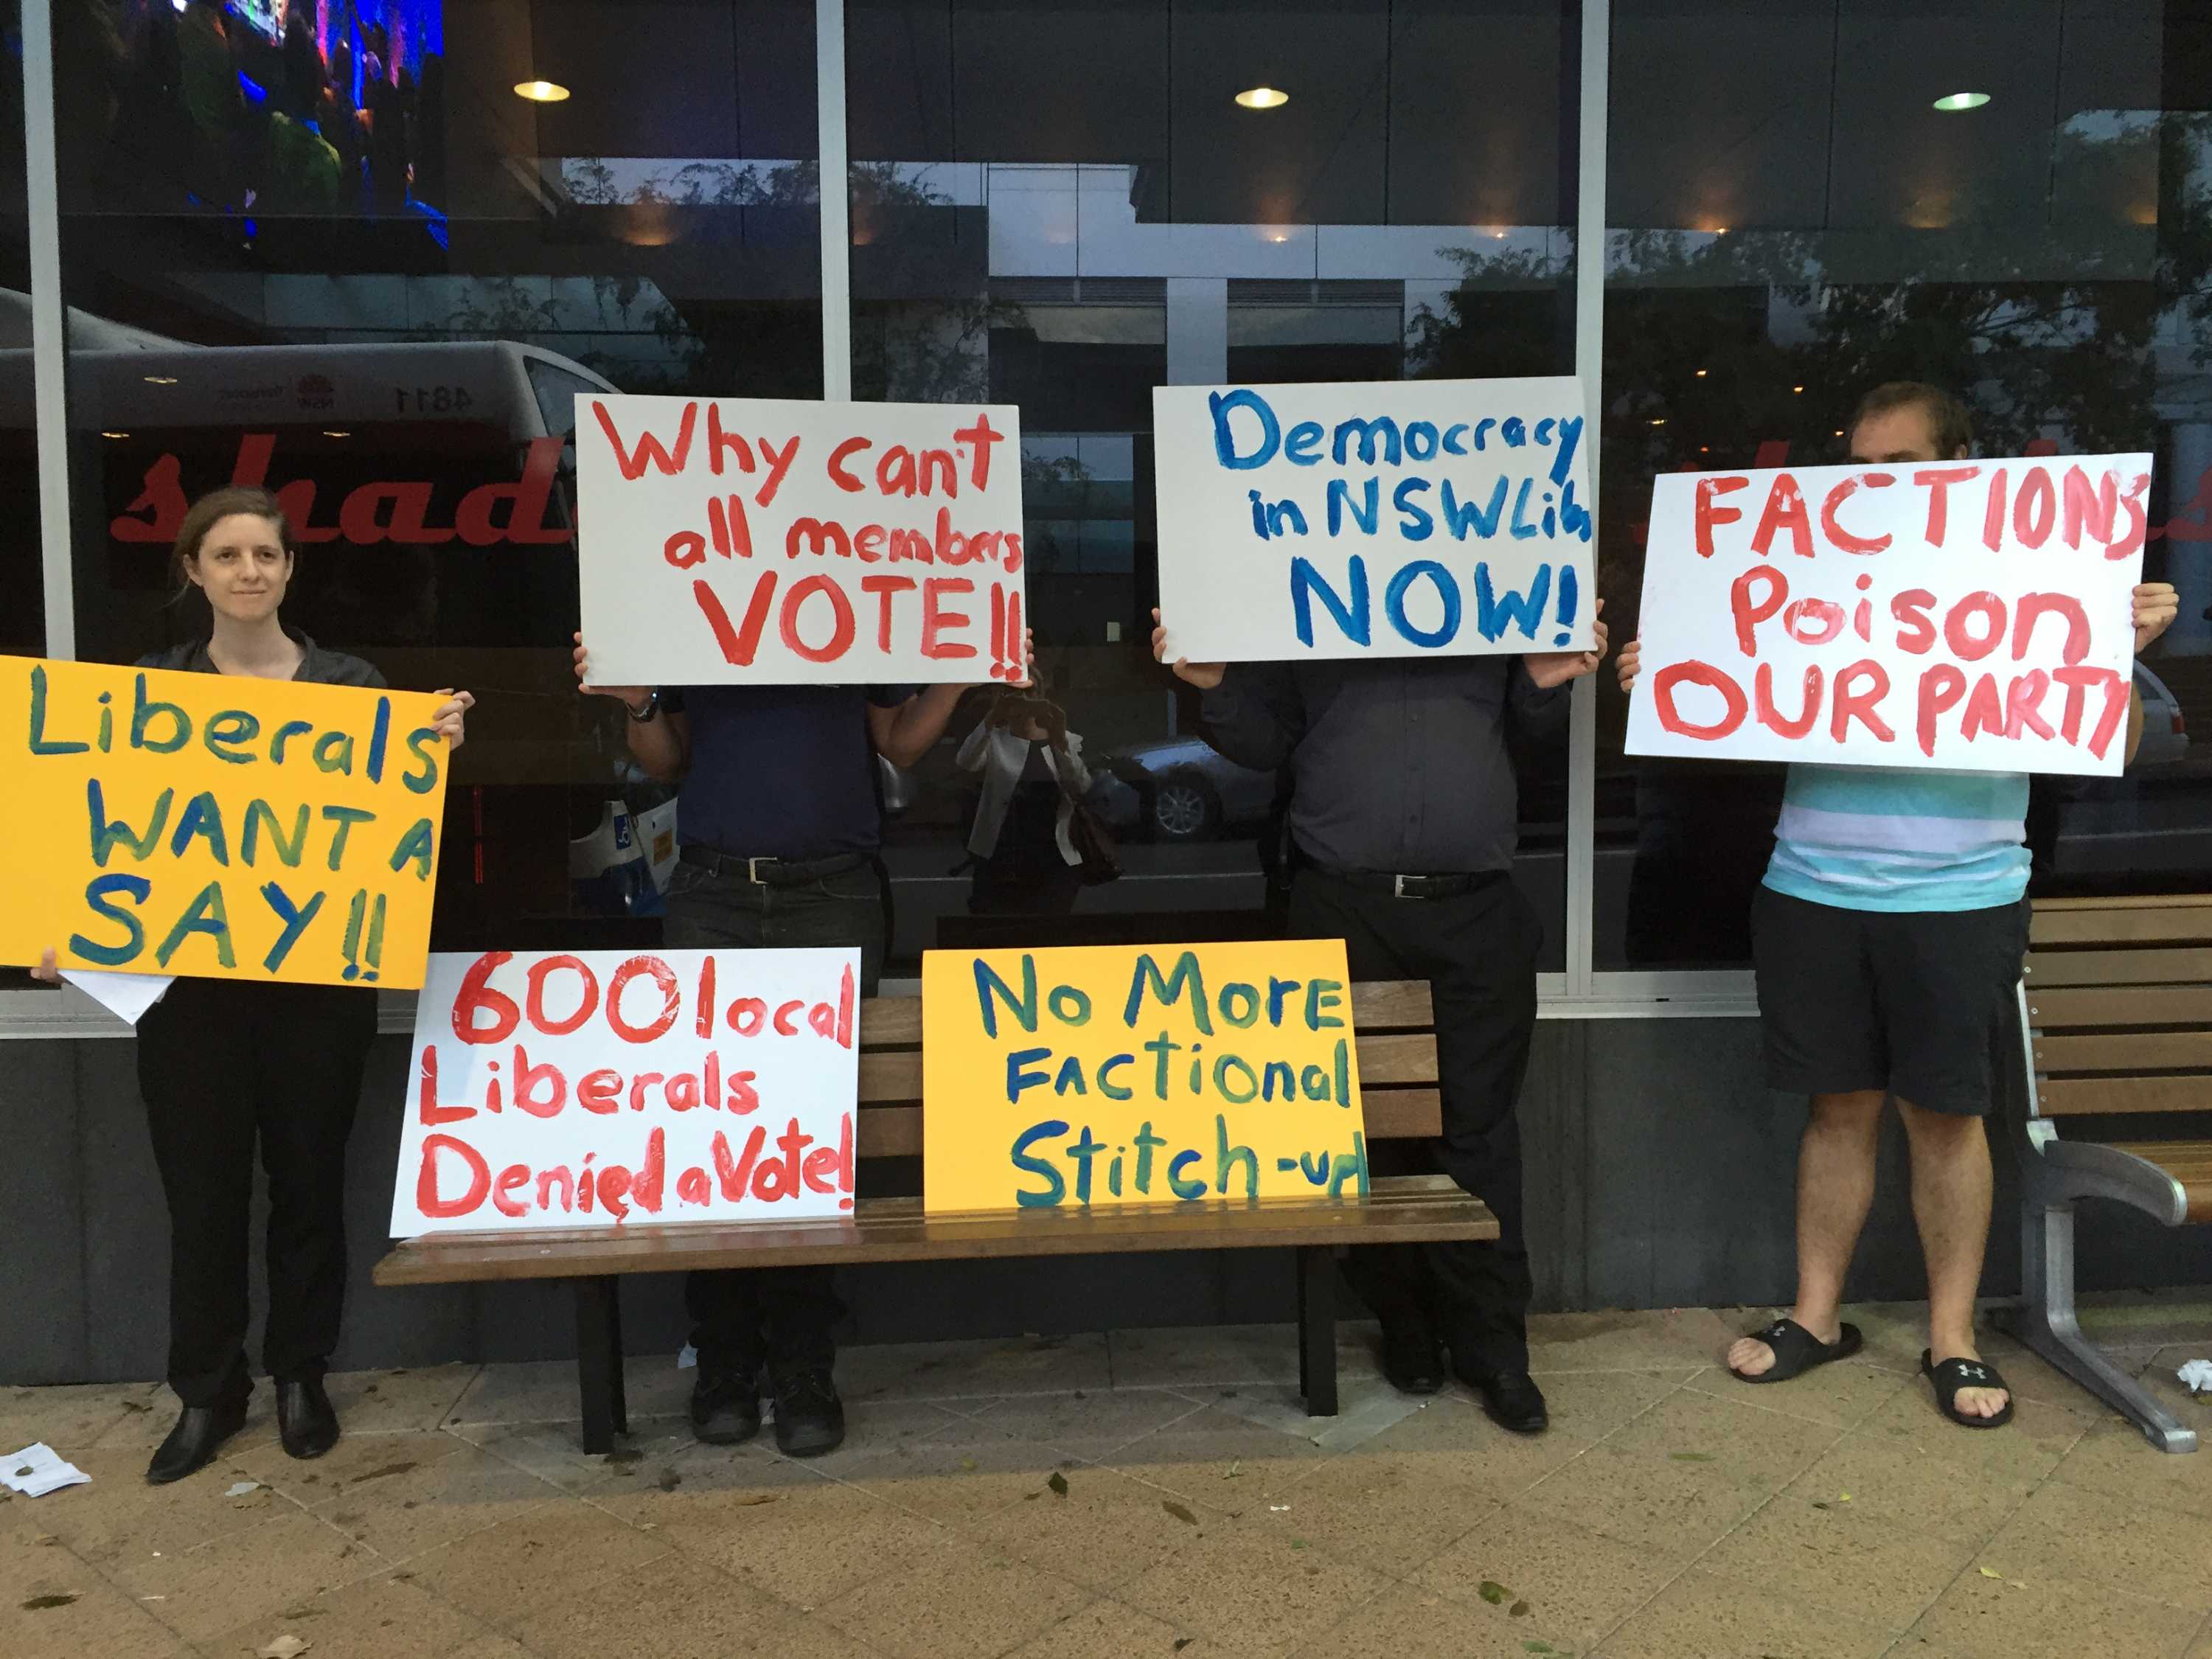 Liberals
WANT A
SAY!!
Why can't
all members
VOTE!!
Democracy
in NSW Libs
NOW!
FACTIONS
Poison
OUR PARTY
600 local
Liberals
Denied a Vote!
No MorE
FACTional
Stitch-up
shad
4811
NSW